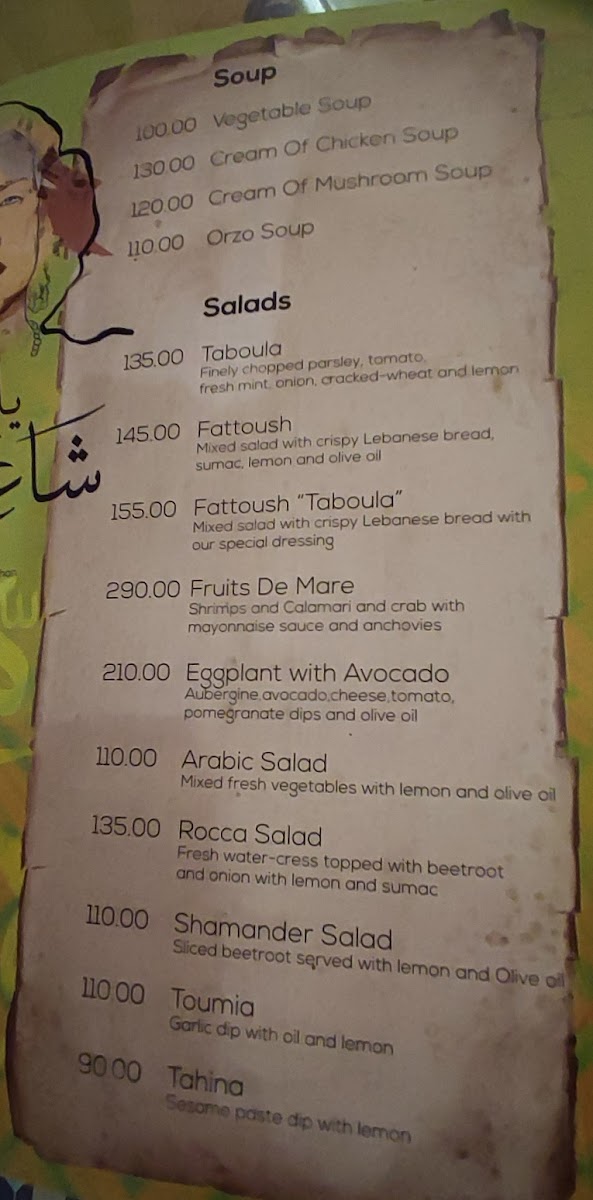 Soup
100.00 Vegetable Soup
130.00 Cream Of Chicken Soup
120.00 Cream Of Mushroom Soup
110.00 Orzo Soup
Salads
135.00 Taboula
Finely chopped parsley, tomato,
fresh mint, onion, cracked-wheat and lemon
145.00 Fattoush
Mixed salad with crispy Lebanese bread,
sumac, lemon and olive oil
155.00 Fattoush “Taboula”
Mixed salad with crispy Lebanese bread with
our special dressing
290.00 Fruits De Mare
Shrimps and Calamari and crab with
mayonnaise sauce and anchovies
210.00 Eggplant with Avocado
Aubergine,avocado,cheese,tomato,
pomegranate dips and olive oil
110.00 Arabic Salad
Mixed fresh vegetables with lemon and olive oil
135.00 Rocca Salad
Fresh water-cress topped with beetroot
and onion with lemon and sumac
110.00 Shamander Salad
Sliced beetroot served with lemon and Olive oil
110.00 Toumia
Garlic dip with oil and lemon
90.00 Tahina
Sesame paste dip with lemon
يا